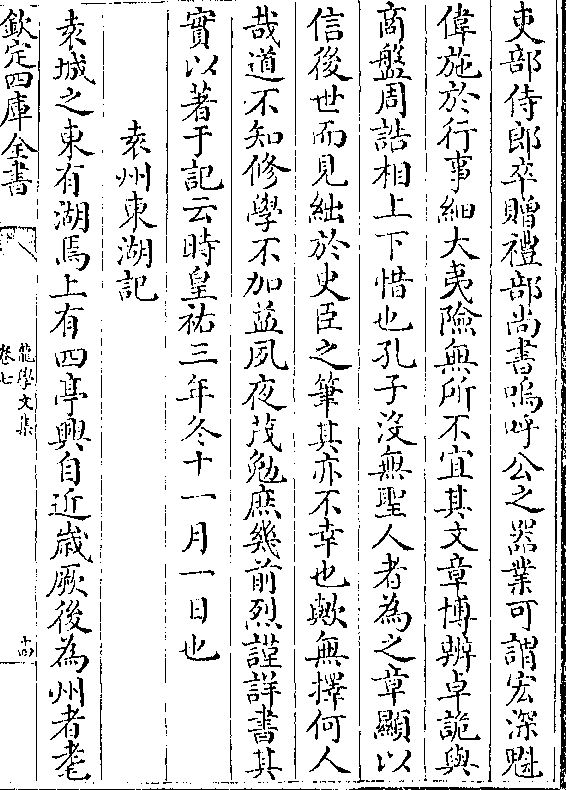 吏部侍郎卒贈禮部尚書嗚呼公之器業可謂宏深魁
偉施於行事細大夷險無所不宜其文章博辨卓詭與
商盤周誥相上下惜也孔子沒無聖人者為之章顯以
信後世而見絀於史臣之筆其亦不幸也歟無擇何人
哉道不知修學不加益夙夜茂勉庶幾前烈謹詳書其
實以著于記云時皇祐三年冬十一月一日也
袁州東湖記
袁城之東有湖焉上有四亭興自近歲厥後為州者耄
欽定四庫全書
龍學文集
卷七
十四